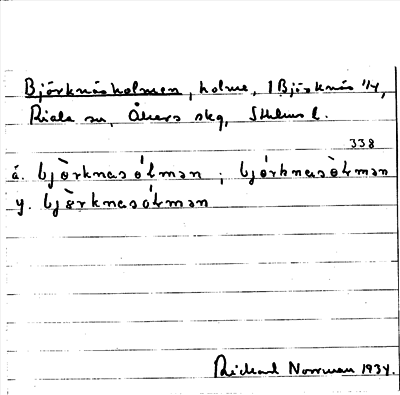 Björknäsholmen, holme, 1 Björknäs 1/4,
Riala sn, Åkers skg, Sthlms l.
338
ä. bjòrknasólman ; bjórknasòlman
y. bjòrknasólman
Rickard Norrman 1934.